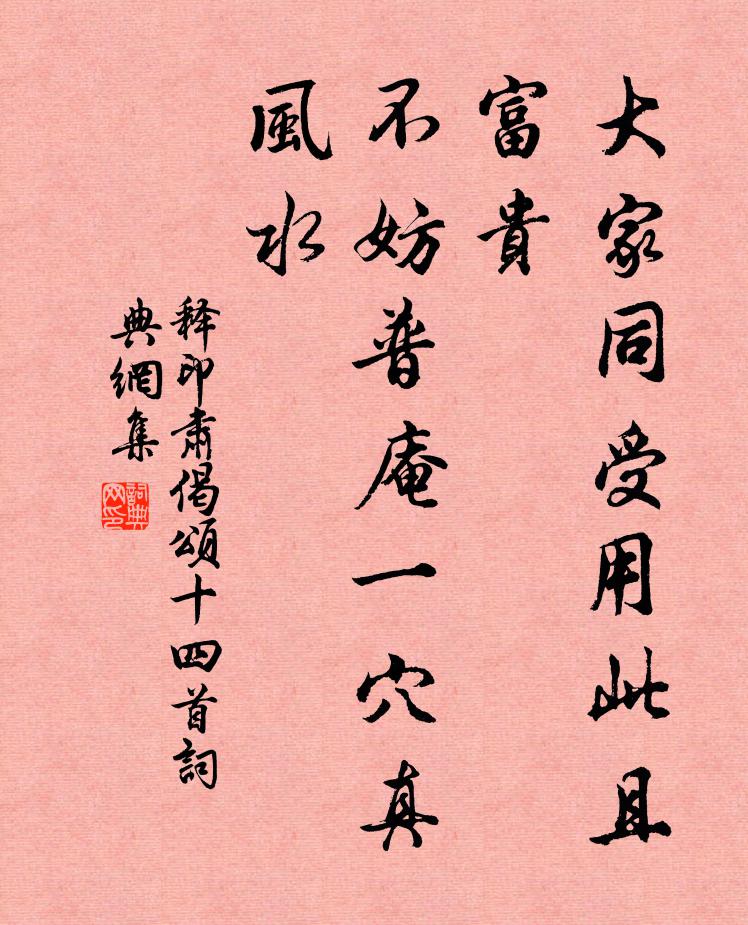 大家同受用此且
富貴
不妨普庵一穴真
風水
释印肅偈頌十四首詞
典網集
詞典
网印